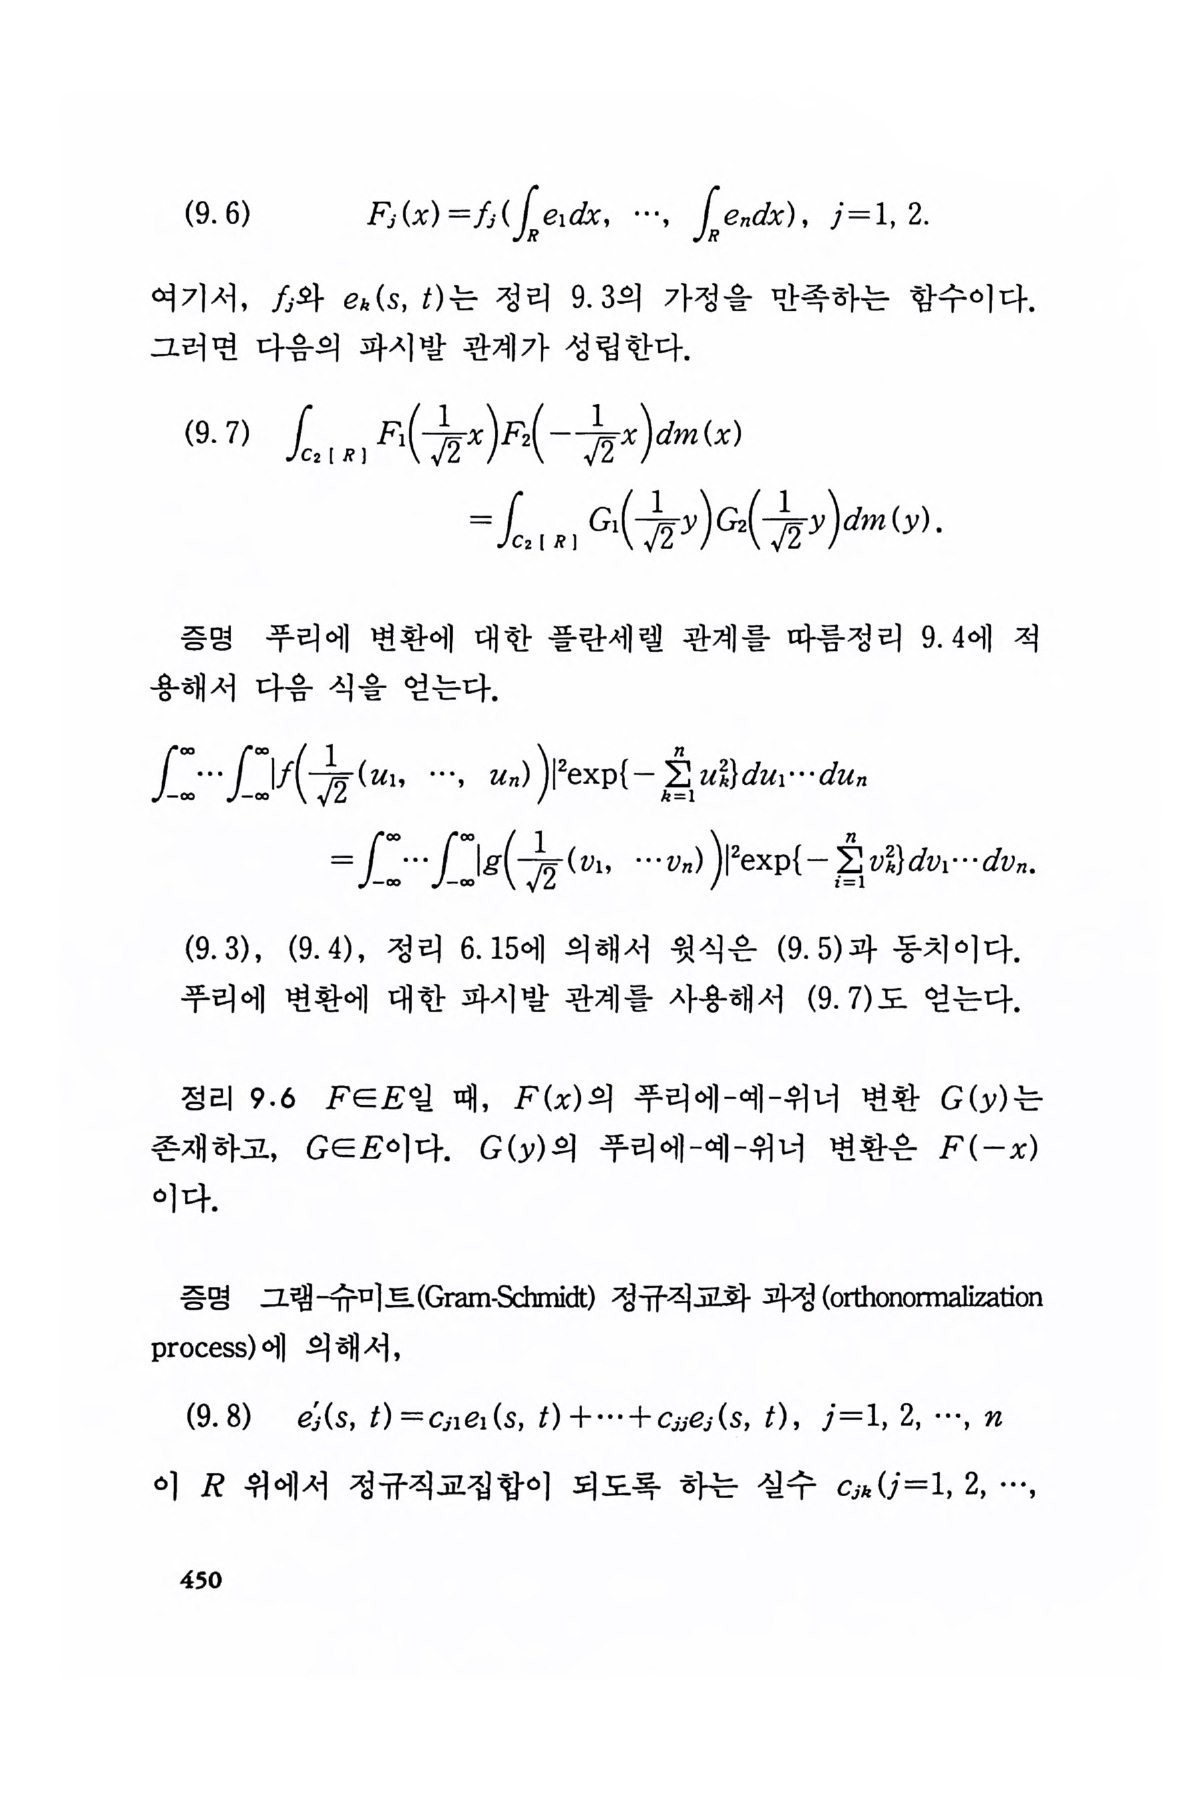 (9. 6) F_j(x)=f_j(∫_R e_1dx, ⋯, ∫_R e_ndx), j=1, 2.
여기서, f_j와 e_k(s, t)는 정리 9. 3의 가정을 만족하는 함수이다.
그러면 다음의 파시발 관계가 성립한다.
(9. 7) ∫_{C_2[R]} F_1(1/√2 x)F_2(−1/√2 x)dm(x)
=∫_{C_2[R]} G_1(1/√2 y)G_2(1/√2 y)dm(y).
증명 푸리에 변환에 대한 플란세렐 관계를 따름정리 9. 4에 적
용해서 다음 식을 얻는다.
∫_{−∞}^{∞}⋯∫_{−∞}^{∞}|f(1/√2 (u_1, ⋯, u_n))|²exp{−∑_{k=1}^{n} u_k²}du_1⋯du_n
=∫_{−∞}^{∞}⋯∫_{−∞}^{∞}|g(1/√2 (v_1, ⋯v_n))|²exp{−∑_{i=1}^{n} v_k²}dv_1⋯dv_n.
(9. 3), (9. 4), 정리 6. 15에 의해서 윗식은 (9. 5)과 동치이다.
푸리에 변환에 대한 파시발 관계를 사용해서 (9. 7)도 얻는다.
정리 9.6 F∈E일 때, F(x)의 푸리에-예-위너 변환 G(y)는
존재하고, G∈E이다. G(y)의 푸리에-예-위너 변환은 F(−x)
이다.
증명 그램-슈미트(Gram-Schmidt) 정규직교화 과정(orthonormalization
process)에 의해서,
(9. 8) e′_j(s, t)=c_{j1}e_1(s, t)+⋯+c_{jj}e_j(s, t), j=1, 2, ⋯, n
이 R 위에서 정규직교집합이 되도록 하는 실수 c_{jk}(j=1, 2, ⋯,
450